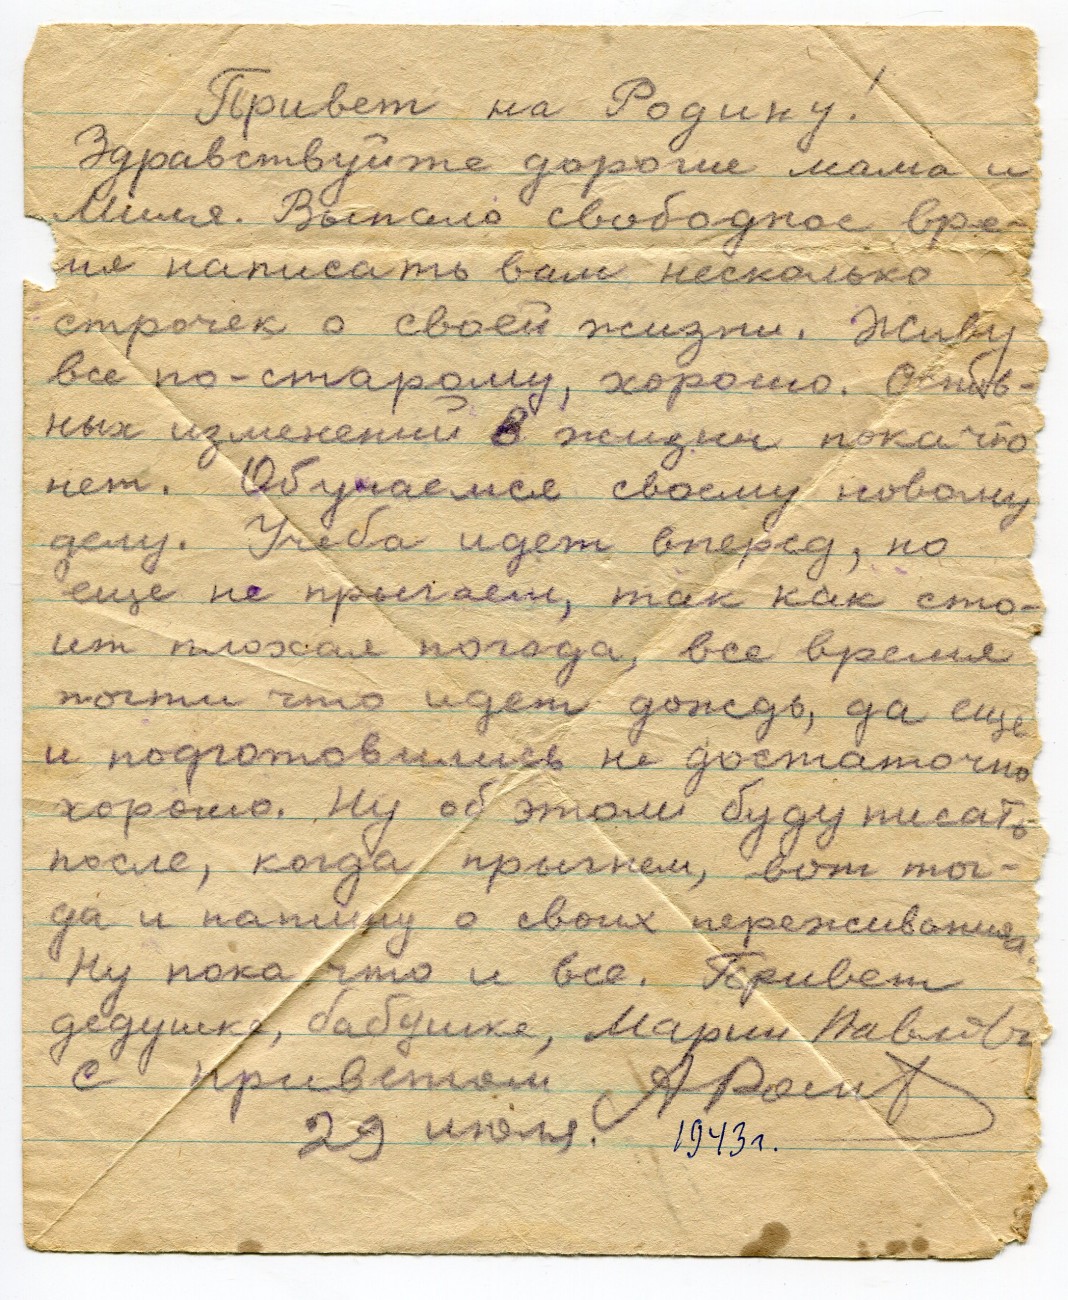 Привет на Родину!
Здравствуйте дорогие мама и
Миля. Выпало свободное вре-
мя написать вам несколько
строчек о своей жизни. Живу
все по-старому, хорошо.
ных изменений в жизни пока что
нет. Обучаемся своему новому
делу. Учеба идет вперед, но
еще не прыгаем, так как сто-
ит плохая погода, все время
почти что идет дождь, да еще
и подготовились не достаточно
хорошо. Ну об этом буду писать
после, когда прыгнем, вот тог-
да и напишу о своих переживаниях.
Ну пока что и все. Привет
дедушке, бабушке, Марии
С приветом
29 июля. 1943 г.